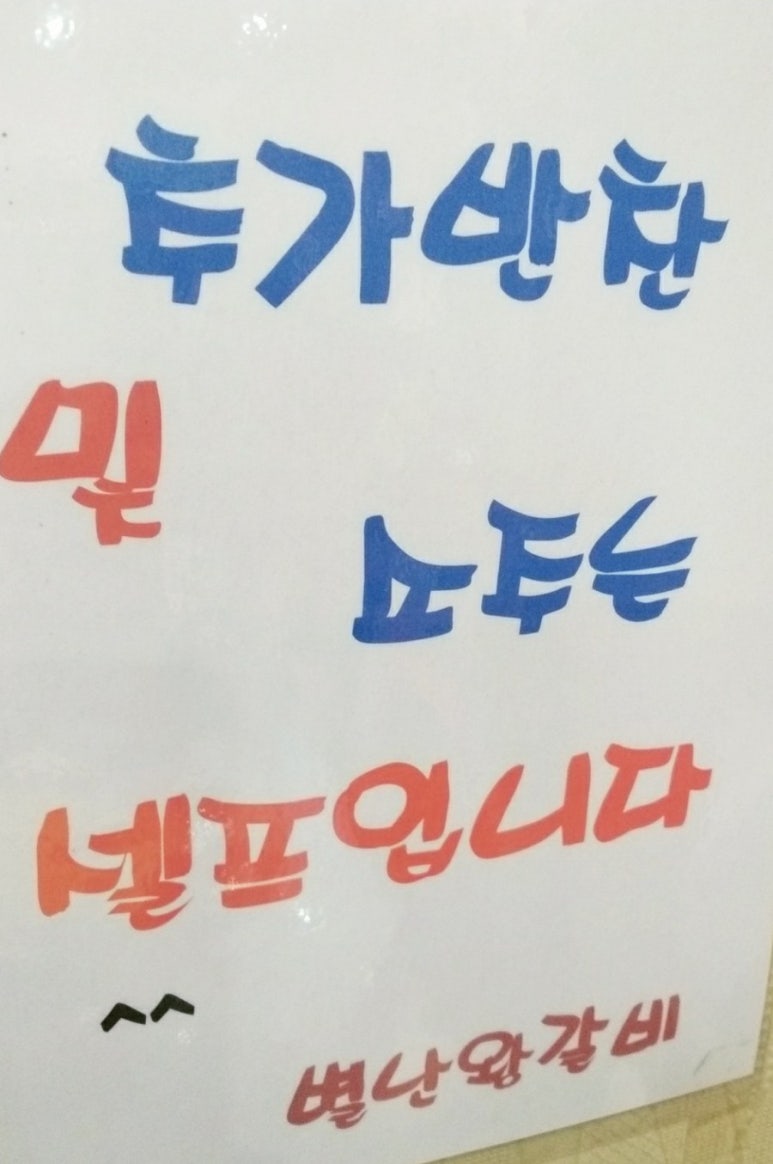 추가반찬
및
소주는
셀프입니다
^^
별난왕갈비